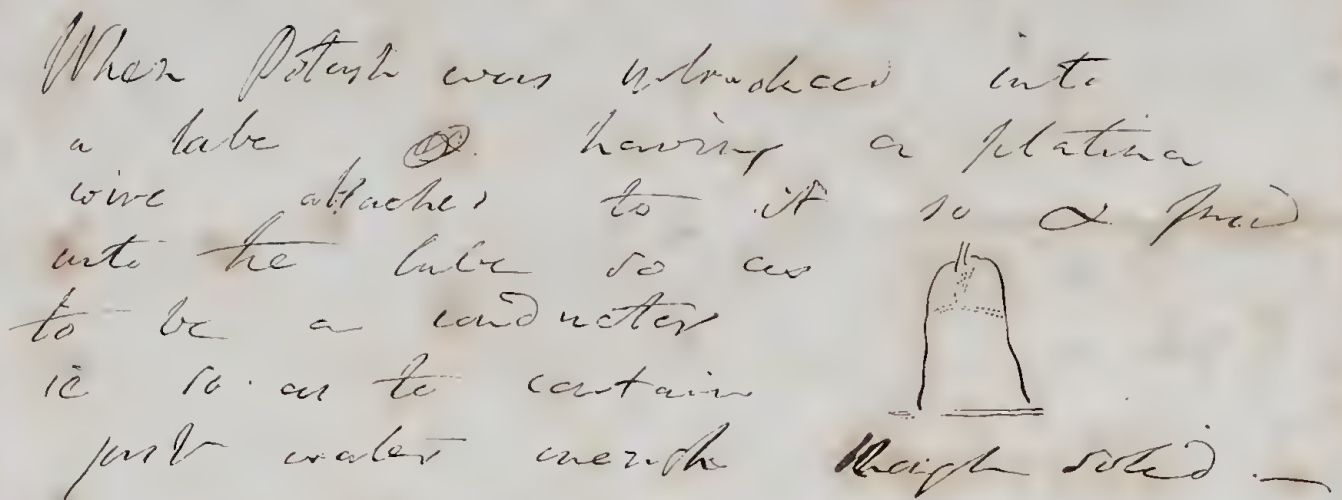 When Potash was introduced into
a tube having a platina
wire attached to it so & fused
into the tube so as
to be a conductor
ie so as to contain
just water enough though solid. —